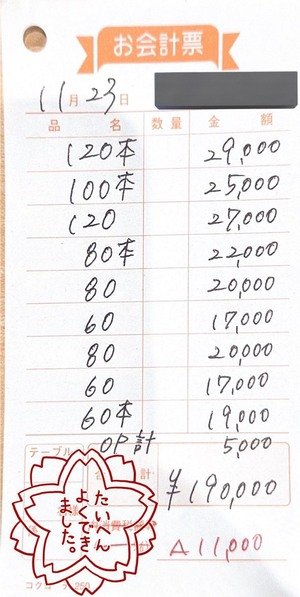 お会計票
11月23日
品名 数量 金額
120本 29,000
100本 25,000
120 27,000
80本 22,000
80 20,000
60 17,000
80 20,000
60 17,000
60本 19,000
OP計 5,000
テーブル 計 ¥190,000
様
消費税 △11,000
たいへん
よくでき
ました。